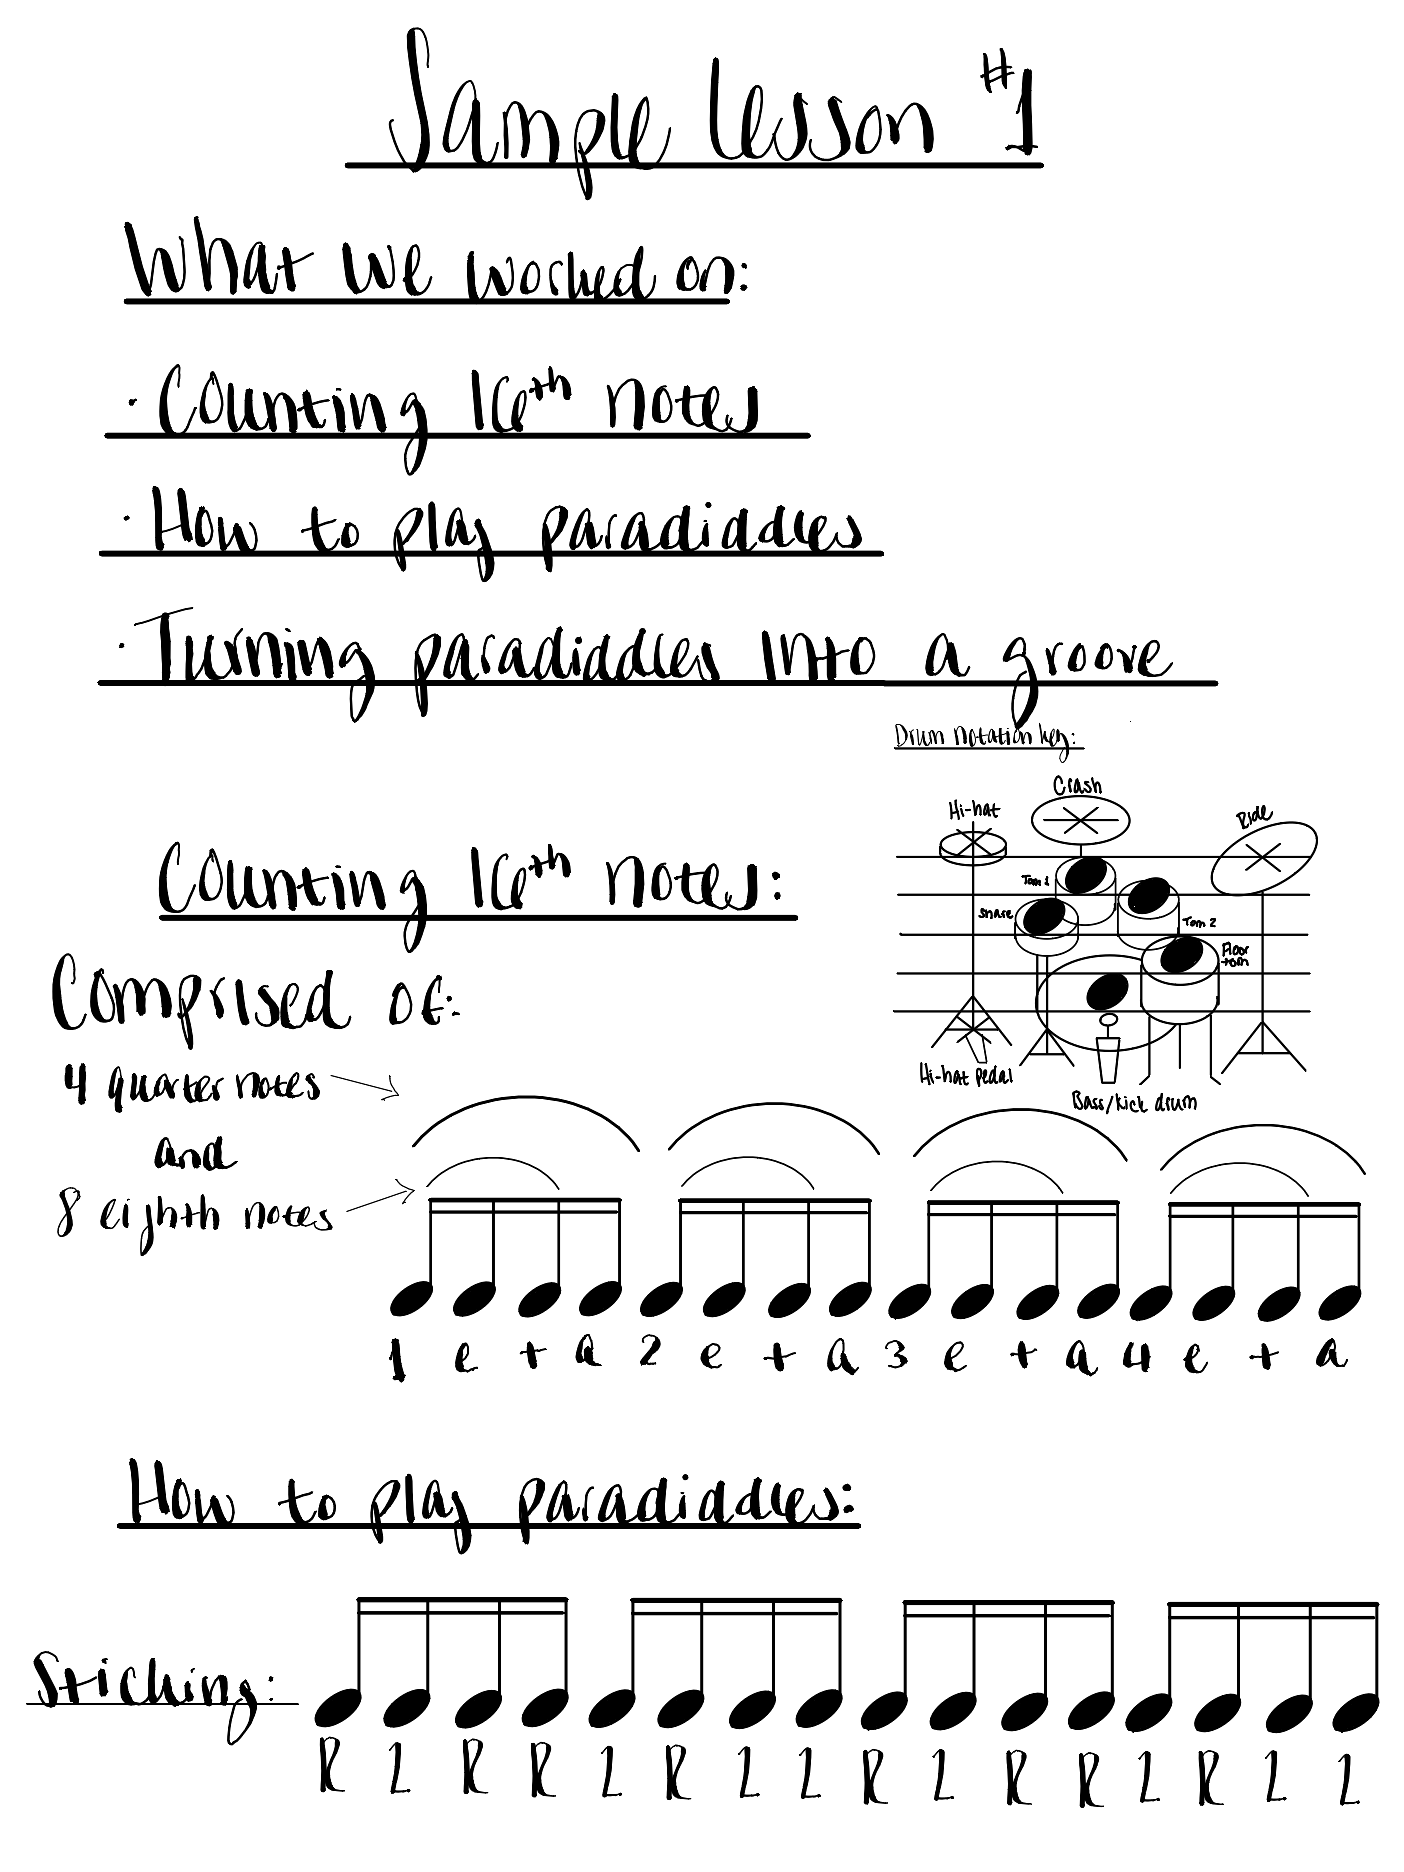 Sample Lesson #1
What we worked on:
· Counting 16th notes
· How to play paradiddles
· Turning paradiddles into a groove
Drum notation key:
Crash
Hi-hat
Ride
Tom 1
Snare
Tom 2
Floor tom
Hi-hat pedal
Bass/kick drum
Counting 16th notes:
Comprised of:
4 quarter notes
and
8 eighth notes
1 e + a 2 e + a 3 e + a 4 e + a
How to play paradiddles:
Sticking:
R L R R L R L L R L R R L R L L